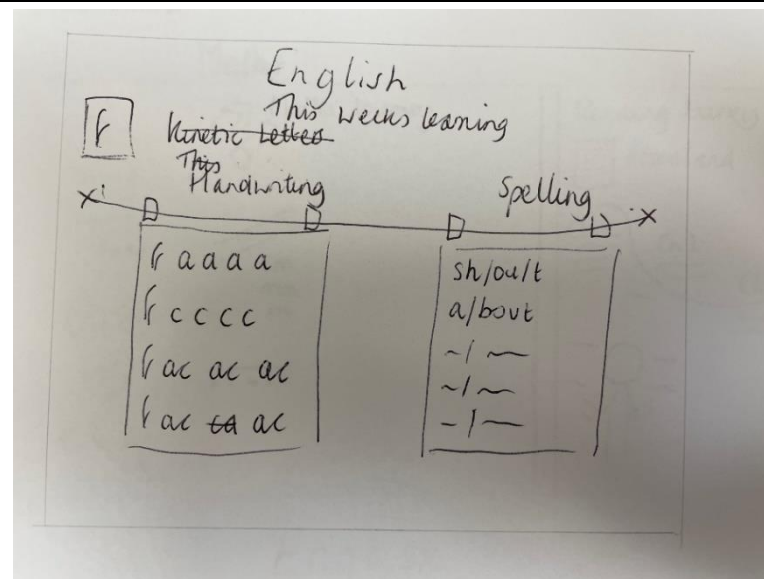 English
This Weeks learning
Kinetic Letters
This
Handwriting
Spelling
a a a a
c c c c
ac ac ac
ac ca ac
sh/ou/t
a/bout